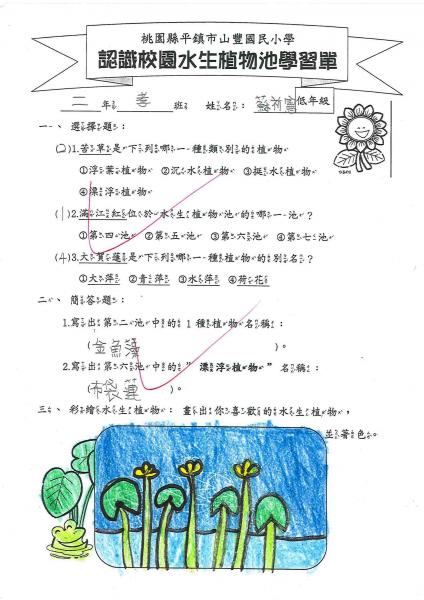 桃園縣平鎮市山豐國民小學
認識校園水生植物池學習單
二年 孝 班 姓名： 低年級
一、選擇題：
(2)1.苦草是下列哪一種類別的植物
①浮葉植物 ②沉水植物 ③挺水植物
④漂浮植物
(1)2.滿江紅位於水生植物池的哪一池？
①第四池 ②第五池 ③第六池 ④第七池
(4)3.大賀蓮是下列哪一種植物的別名？
①大萍 ②青萍 ③水萍 ④荷花
二、簡答題：
1.寫出第二池中的1種植物名稱：
(金魚藻)。
2.寫出第六池中的"漂浮植物"名稱：
(布袋蓮)。
三、彩繪水生植物：畫出你喜歡的水生植物，
並著色。